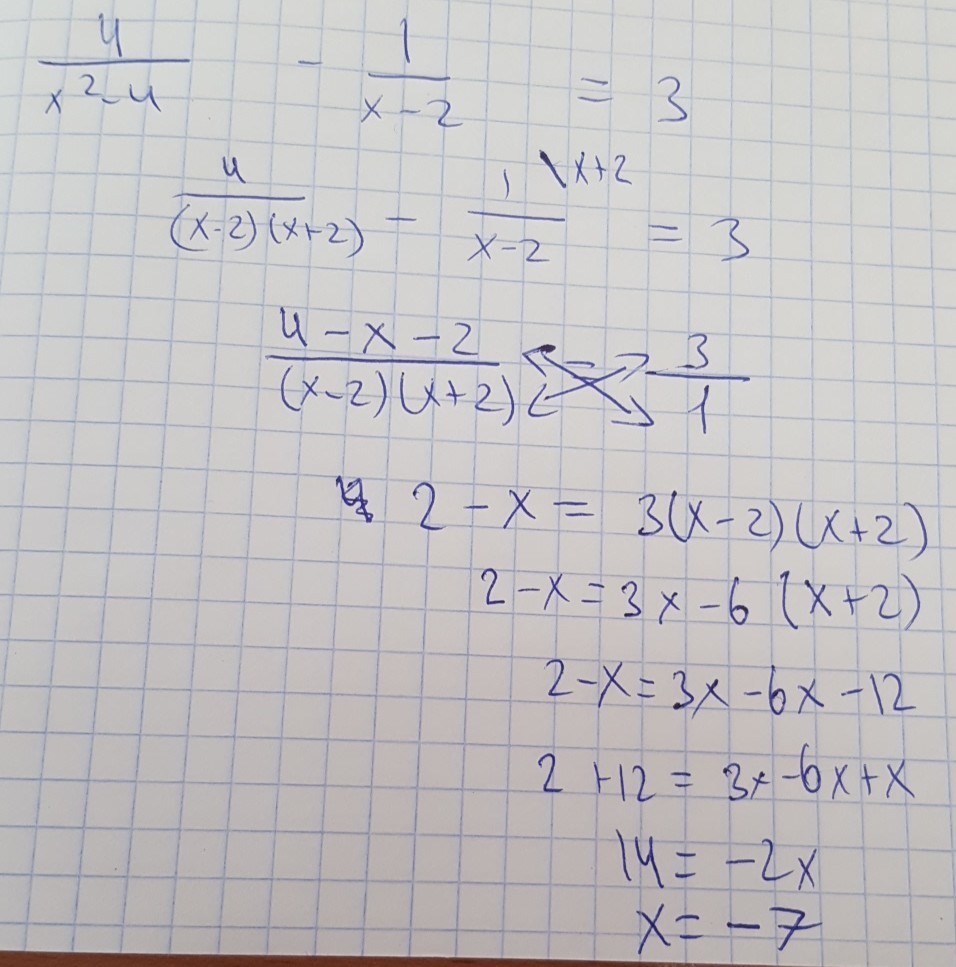 4/(x²-4) - 1/(x-2) = 3
4/((x-2)(x+2)) - 1/(x-2) \x+2 = 3
(4-x-2)/((x-2)(x+2)) = 3/1
2-x = 3(x-2)(x+2)
2-x = 3x-6(x+2)
2-x = 3x-6x-12
2+12 = 3x-6x+x
14 = -2x
x = -7